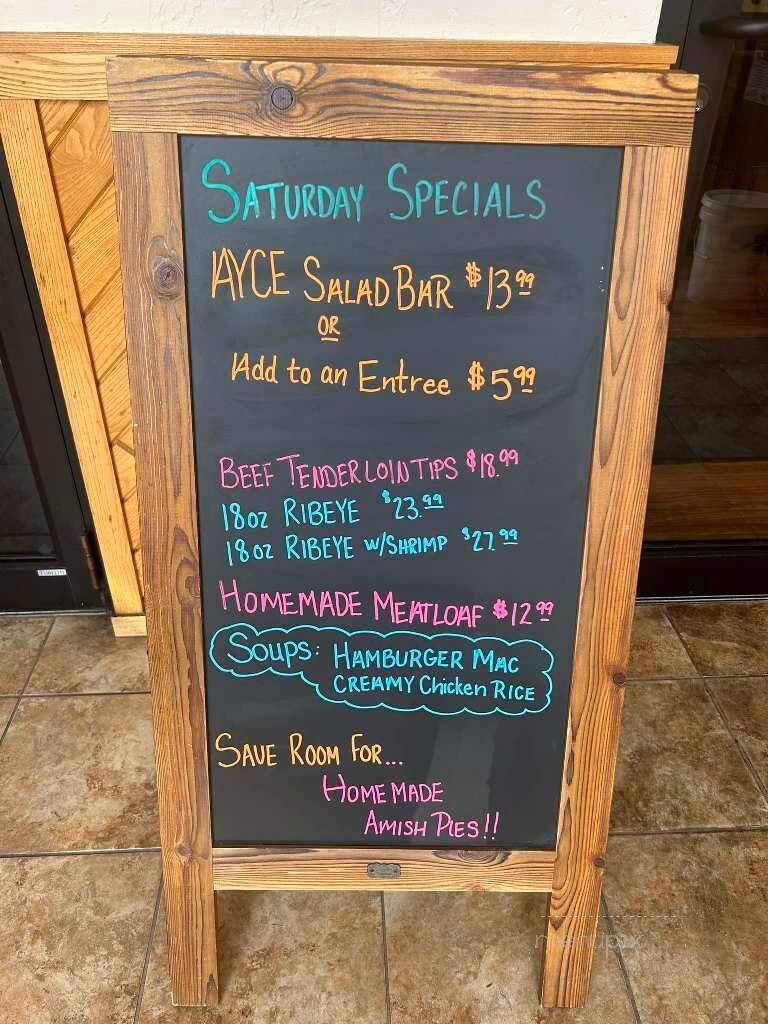 SATURDAY SPECIALS
AYCE SALAD BAR $13.99
OR
Add to an Entree $5.99
BEEF TENDERLOIN TIPS $18.99
18oz RIBEYE $23.99
18oz RIBEYE W/SHRIMP $27.99
HOMEMADE MEATLOAF $12.99
SOUPS: HAMBURGER MAC
CREAMY Chicken RICE
SAVE ROOM FOR...
HOMEMADE
AMISH PIES!!
menupix